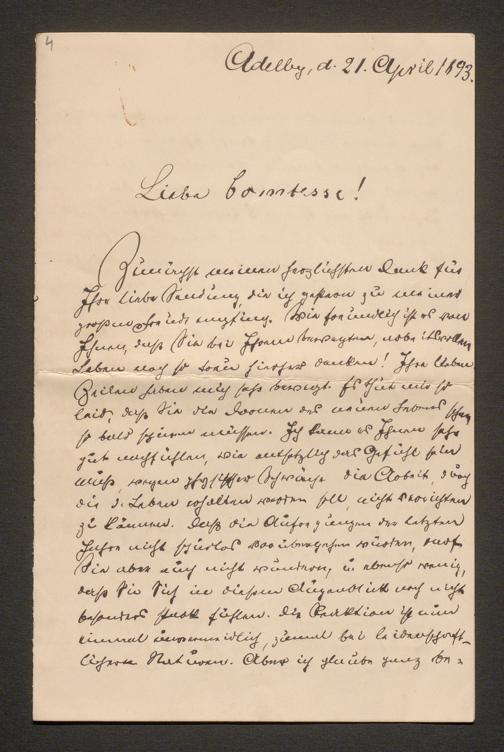 4
Adelby, d. 21. April 1893.
Liebe Comtesse!
Zunächst meinen herzlichsten Dank für
Ihre liebe Sendung, die ich gestern zu meiner
großen Freude empfing. Wie freundlich ist es von
Ihnen, daß Sie bei Ihrem bewegten,
Leben noch so treu hierher denken! Ihre lieben
Zeilen haben mich sehr bewegt. Es thut mir so
leid, daß Sie die Dornen des neuen Lebens schon
so bald spüren müssen. Ich kann es Ihnen sehr
gut nachfühlen, wie entsetzlich das Gefühl sein
muß, wegen Schwäche die Arbeit, durch
die d. Leben erhalten werden soll, nicht verrichten
zu können. Daß die Aufregungen der letzten
Jahre nicht spurlos vorübergehen würden, darf
Sie aber auch nicht wundern, u. ebenso wenig,
daß Sie Sich in diesem Augenblick noch nicht
besonders stark fühlen. Die Reaktion ist nun
einmal unvermeidlich, zumal bei leidenschaft-
licheren Naturen. Aber ich glaube ganz be-